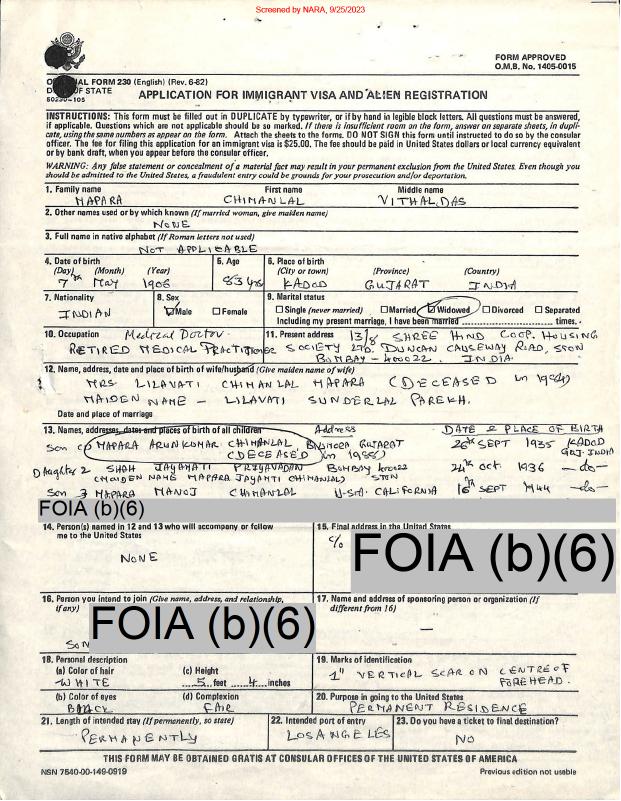 Screened by NARA, 9/25/2023
FORM APPROVED
O.M.B. No. 1405-0015
NAL FORM 230 (English) (Rev. 6-82)
OF STATE
50230-105
APPLICATION FOR IMMIGRANT VISA AND ALIEN REGISTRATION
INSTRUCTIONS: This form must be filled out in DUPLICATE by typewriter, or if by hand in legible block letters. All questions must be answered,
if applicable. Questions which are not applicable should be so marked. If there is insufficient room on the form, answer on separate sheets, in dupli-
cate, using the same numbers as appear on the form. Attach the sheets to the forms. DO NOT SIGN this form until instructed to do so by the consular
officer. The fee for filing this application for an immigrant visa is $25.00. The fee should be paid in United States dollars or local currency equivalent
or by bank draft, when you appear before the consular officer.
WARNING: Any false statement or concealment of a material fact may result in your permanent exclusion from the United States. Even though you
should be admitted to the United States, a fraudulent entry could be grounds for your prosecution and/or deportation.
1. Family name First name Middle name
MAPARA CHIMANLAL VITHALDAS
2. Other names used or by which known (If married woman, give maiden name)
NONE
3. Full name in native alphabet (If Roman letters not used)
NOT APPLICABLE
4. Date of birth 5. Age 6. Place of birth
(Day) (Month) (Year) (City or town) (Province) (Country)
7th May 1906 83 yrs KADOD GUJARAT INDIA
7. Nationality 8. Sex 9. Marital status
INDIAN Male Female Single (never married) Married Widowed Divorced Separated
Including my present marriage, I have been married times.
10. Occupation Medical Doctor 11. Present address 13/8 SHREE HIND COOP. HOUSING
RETIRED MEDICAL PRACTITIONER SOCIETY LTD. DUNCAN CAUSEWAY ROAD, SION
BOMBAY - 400022. INDIA
12. Name, address, date and place of birth of wife/husband (Give maiden name of wife)
MRS. LILAVATI CHIMANLAL MAPARA (DECEASED in 1984)
MAIDEN NAME - LILAVATI SUNDERLAL PAREKH.
Date and place of marriage
13. Names, addresses, dates and places of birth of all children Address DATE & PLACE OF BIRTH
Son MAPARA ARUNKUMAR CHIMANLAL GUJARAT 26th SEPT 1935 KADOD
(DECEASED) (in 1985) GUJ. INDIA
Daughter 2 SHAH JAYAMATI PRIYAVADAN BOMBAY 400022 24th OCT. 1936 -do-
(MAIDEN NAME MAPARA JAYAMTI CHIMANLAL) SION
Son 3 MAPARA MANOJ CHIMANLAL U.S.A. CALIFORNIA 16th SEPT 1944 -do-
FOIA (b)(6)
14. Person(s) named in 12 and 13 who will accompany or follow
me to the United States
NONE
15. Final address in the United States
c/o
FOIA (b)(6)
16. Person you intend to join (Give name, address, and relationship,
if any)
FOIA (b)(6)
SON
17. Name and address of sponsoring person or organization (If
different from 16)
—
18. Personal description 19. Marks of identification
(a) Color of hair (c) Height 1" VERTICAL SCAR ON CENTRE OF
WHITE 5 feet 4 inches FOREHEAD.
(b) Color of eyes (d) Complexion 20. Purpose in going to the United States
BLACK FAIR PERMANENT RESIDENCE
21. Length of intended stay (If permanently, so state) 22. Intended port of entry 23. Do you have a ticket to final destination?
PERMANENTLY LOS ANGELES NO
THIS FORM MAY BE OBTAINED GRATIS AT CONSULAR OFFICES OF THE UNITED STATES OF AMERICA
NSN 7540-00-149-0919 Previous edition not usable